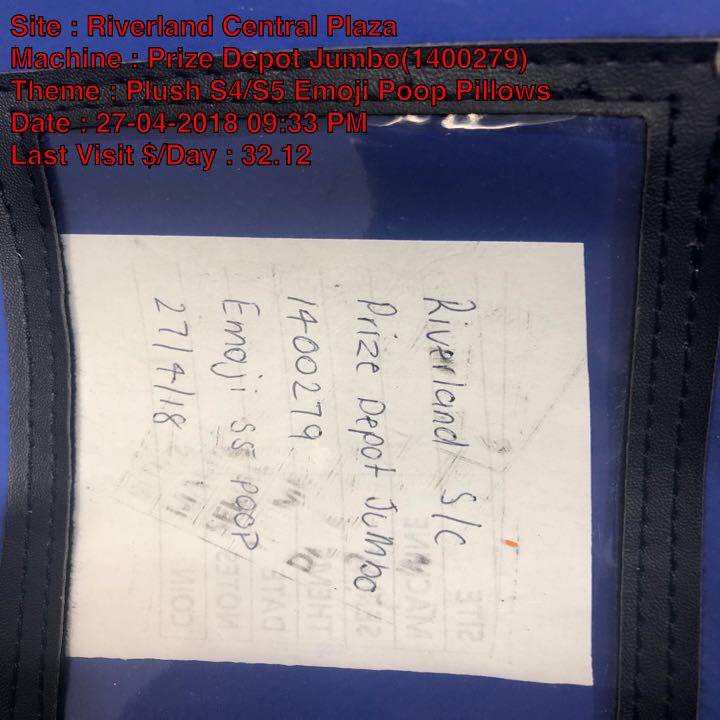 Site : Riverland Central Plaza
Machine : Prize Depot Jumbo(1400279)
Theme : Plush S4/S5 Emoji Poop Pillows
Date : 27-04-2018 09:33 PM
Last Visit $/Day : 32.12
Riverland S/C
Prize Depot Jumbo
1400279
Emoji S5 Poop
27/4/18
SITE
MACHINE
THEME
DATE
NOTES
COIN